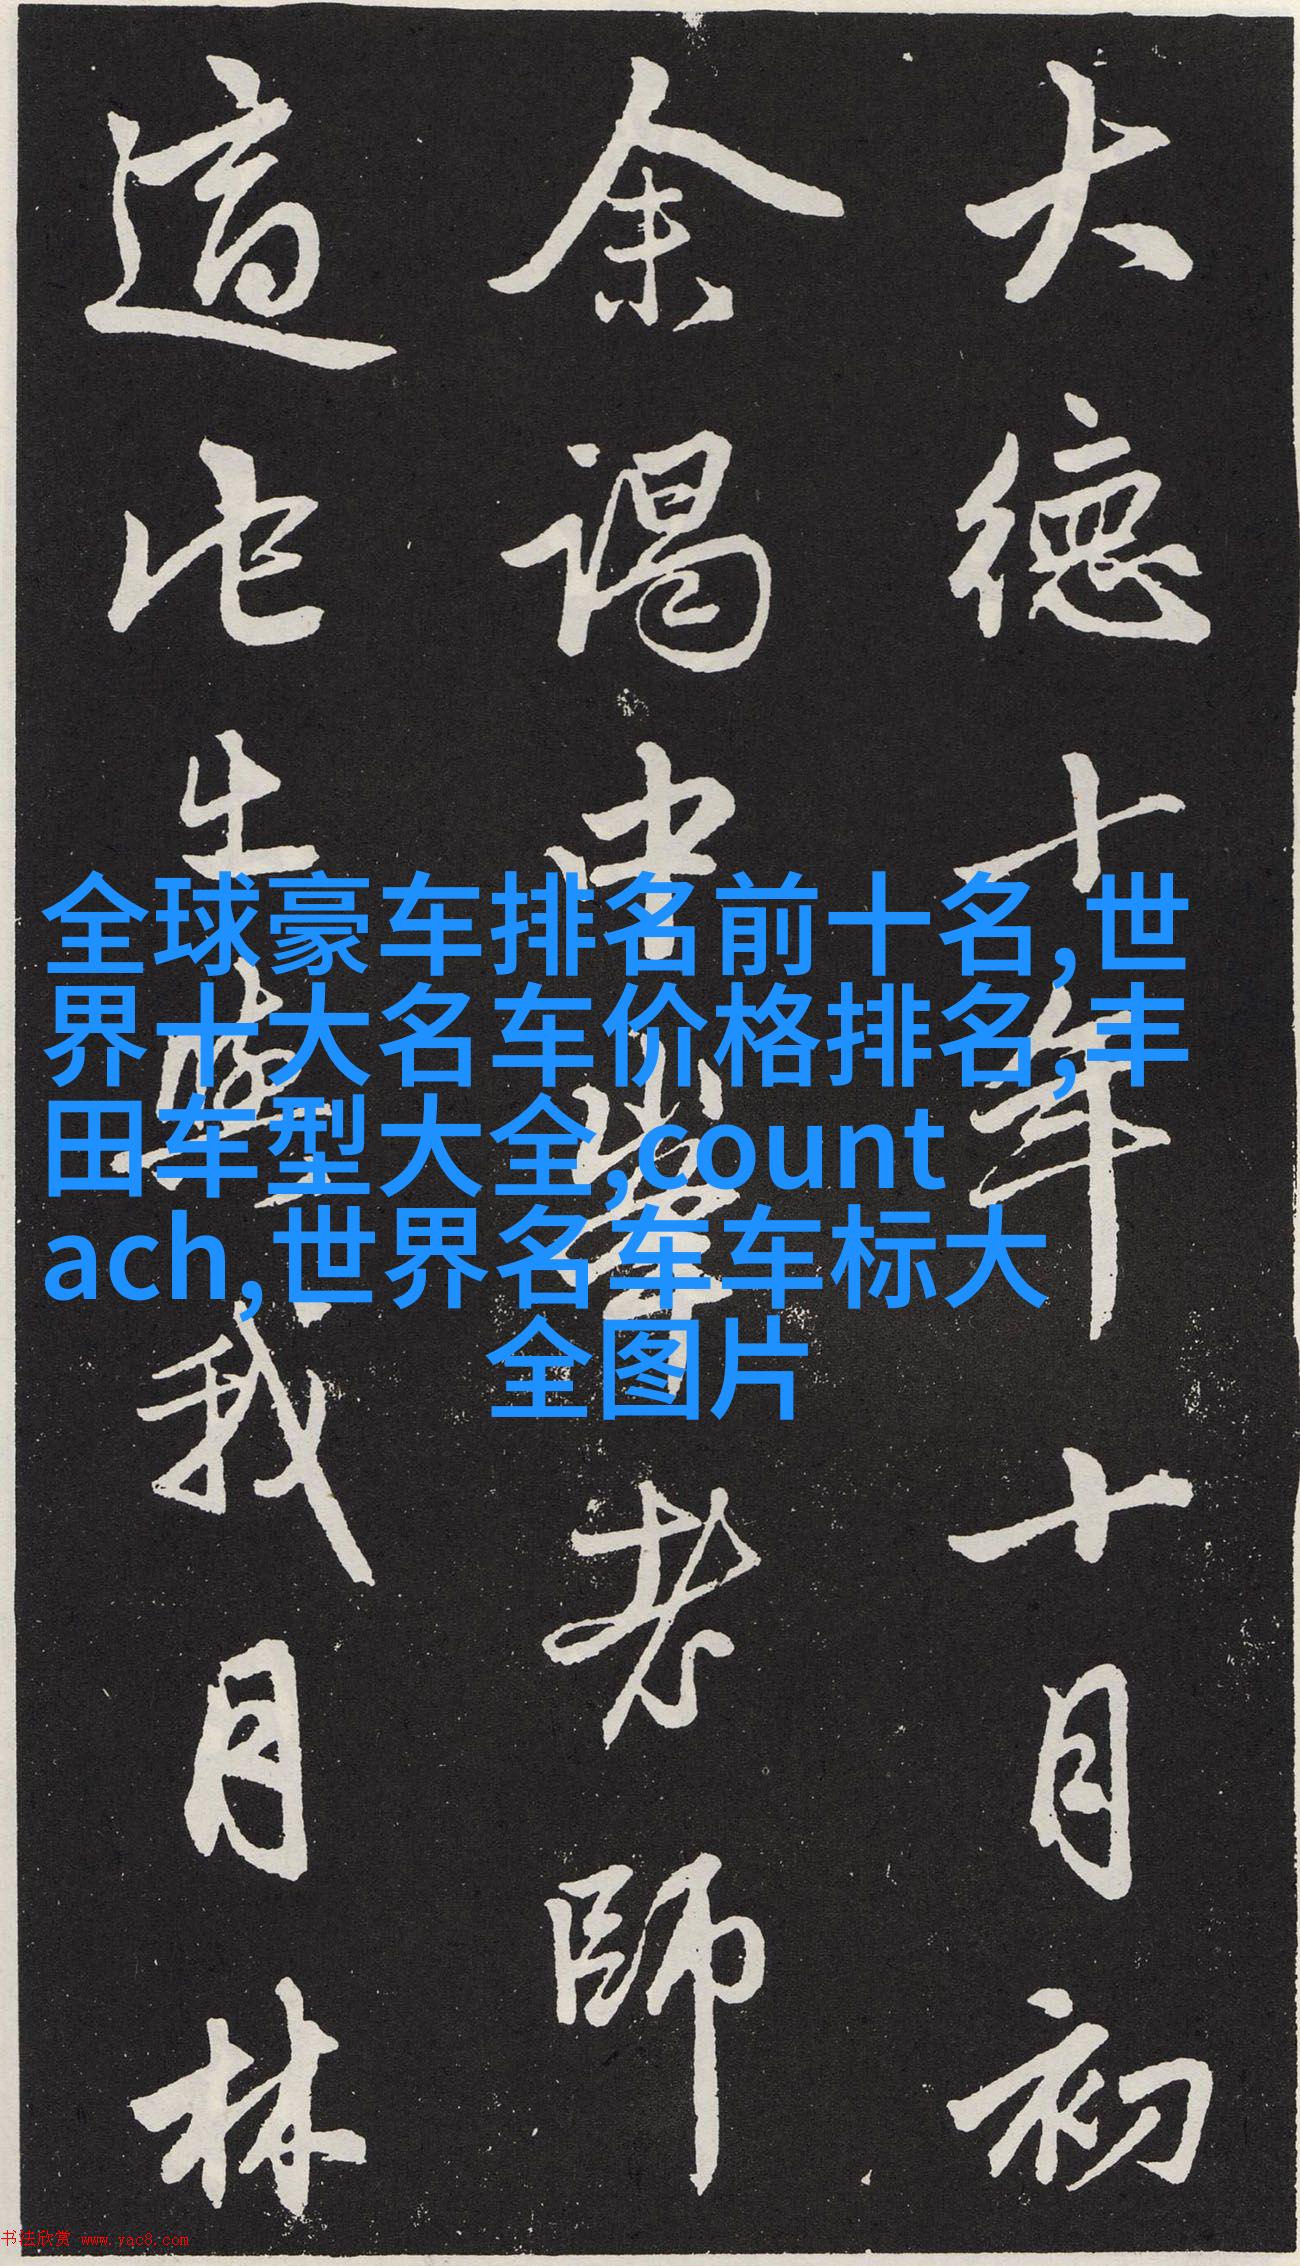 大德十年十月初
余谒中峯老師
適此生與我月林
全球豪车排名前十名,世
界十大名车价格排名,丰
田车型大全,count
ach,世界名车车标大
全图片
书法欣赏 www.yac8.com